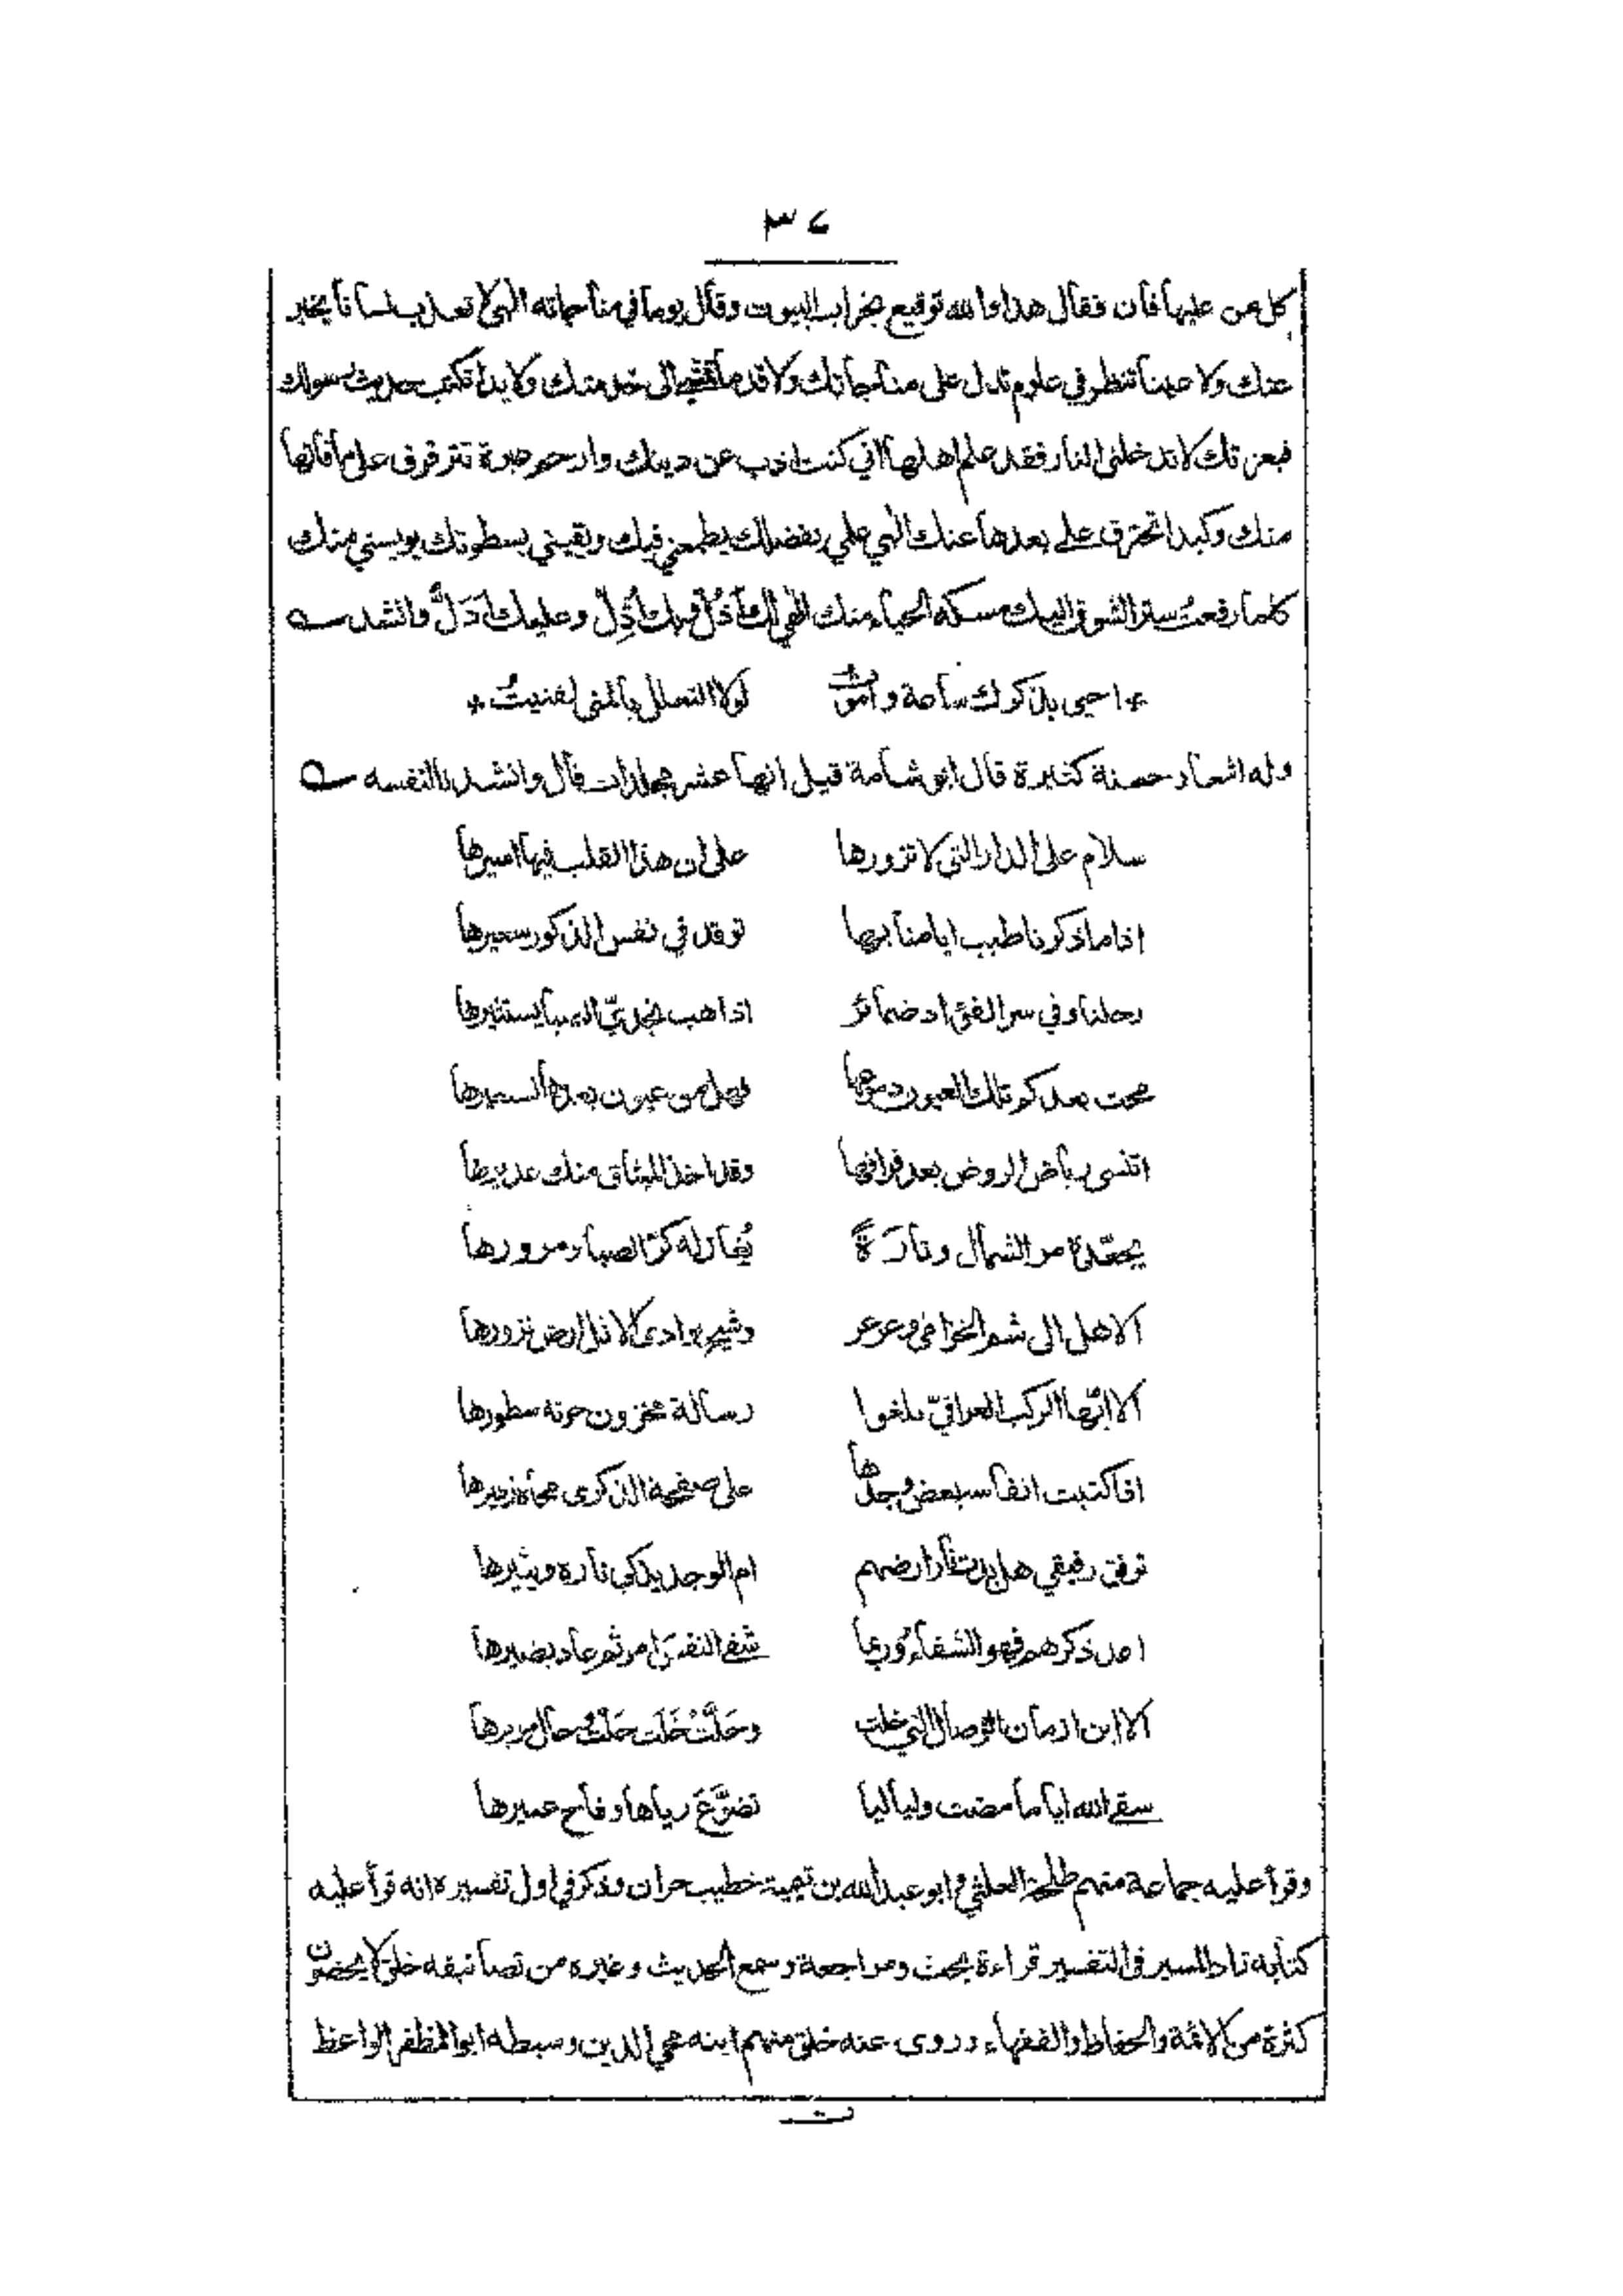 ٣٤
كل من عليها فان فقال هذا والله توقيع بخراب البيوت وقال يوما في مناجاته الهي لا تعذب لسانا يخبر
عنك ولا عينا تنظر في علوم تدل على مناجاتك ولا قدما تمشي الى خدمتك ولا يدا تكتب حديث رسولك
فبعزتك لا تدخلني النار فقد علم اهلها اني كنت اذب عن دينك وارحم عبرة تترقرق على ما فاتها
منك وكبدا تحترق على بعدها عنك الهي علي بفضلك يطمعني فيك ويقيني بسطوتك يويسني منك
كلما رفعت ستر الشوق اليك مسكه الحياء منك الهي لك أذل وبك أدل وعليك أدل وانشد
* احيى بذكرك ساعة واموت لولا التعلل بالمنى لفنيت *
وله اشعار حسنة كثيرة قال ابو شامة قيل انها عشر مجلدات قال وانشدنا لنفسه
سلام على الدار التي لا تزورها على ان هذا القلب فيها اسيرها
اذا ما ذكرنا طيب ايامنا بها توقد في نفس الذكور سعيرها
رحلنا وفي سر الفؤاد ضمائر اذا هب نجديّ الصبا يستثيرها
محت بعدكم تلك العيون دموعها فهل من عيون بعدها نستعيرها
اتنسى رياض الروض بعد فراقها وقد اخذ الميثاق منك غديرها
يجعّده مر الشمال وتارَةً يُغازله كرّ الصبا ومرورها
الا هل الى شم الخزامى وعرعر وشيح بوادى الاثل ارض نزورها
الا ايّها الركب العراقيّ بلغوا رسالة محزون حوته سطورها
اذا كتبت انفاسه بعض وجدها على صفحة الذكرى محاه زفيرها
ترفق رفيقي هل بدت نار ارضهم ام الوجد يذكي ناره ويثيرها
اعد ذكرهم فهو الشفاء وربما شفى النفس امر ثم عاد يضيرها
الا اين ازمان الوصال التي خلت وحلَّت خَلَت حَلَت وحال مريرها
سقى الله اياما مضت ولياليا تضوَّعَ رياها وفاح عبيرها
وقرأ عليه جماعة منهم طلحة العلثي وابو عبد الله بن تيمية خطيب حران وذكر في اول تفسيره انه قرأ عليه
كتابه زاد المسير في التفسير قراءة بحث ومراجعة وسمع الحديث وغيره من تصانيفه خلق لا يحصون
كثرة من الائمة والحفاظ والفقهاء وروى عنه خلق منهم ابنه محي الدين وسبطه ابو المظفر الواعظ